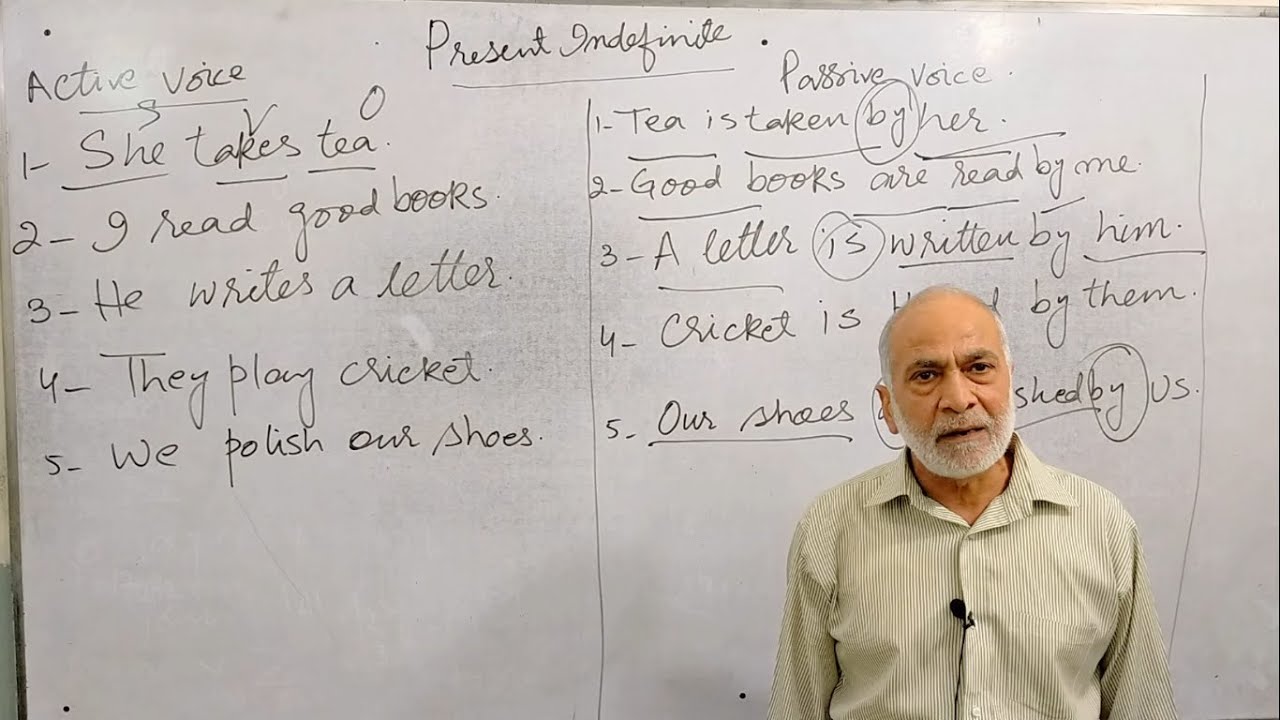 Present Indefinite.
Active Voice
S V O
1- She takes tea.
2- I read good books.
3- He writes a letter.
4- They play cricket.
5- We polish our shoes.
Passive Voice.
1- Tea is taken by her.
2- Good books are read by me.
3- A letter is written by him.
4- Cricket is by them.
5- Our shoes shed by us.